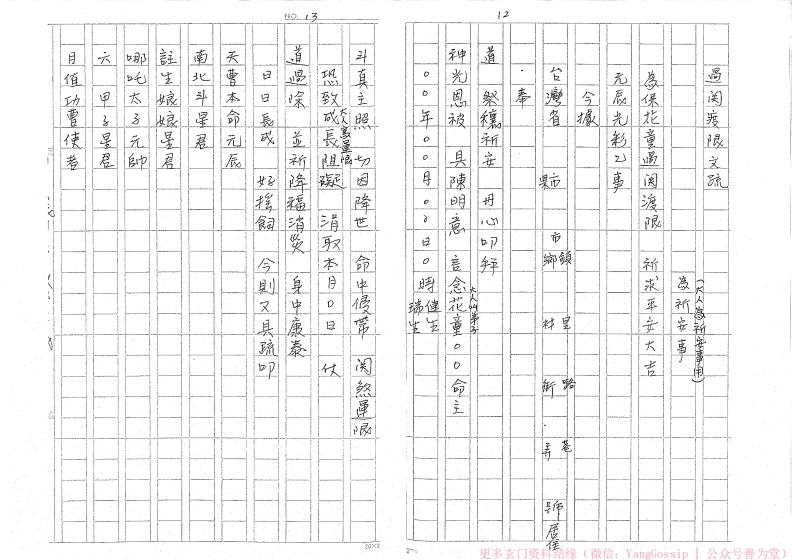 12
過関渡限文疏
(大人為祈安事用)
為祈安事
為保花童過関渡限 祈求平安大吉
元辰光彩乙事
今據
台灣省 縣市 市鄉鎮 村里 街路 弄巷 號居住
奉
道 祭穰祈安 丹心叩拜
神光恩被 具陳明意 言念花童00命主
大人叫弟子
00年00月00日0時健生瑞生
NO. 13
斗真主照 切因降世 命中侵帶 関煞運限
恐致成長阻礙 涓取本月0日 仗
大人寫運限
道過除 並祈降福消災 身中康泰
日日長成 好搖飼 今則又具疏叩
天曹本命元辰
南北斗星君
註生娘娘星君
哪吒太子元帥
六甲子星君
月值功曹使者
20X2
更多玄门资料结缘（微信：YangGossip | 公众号善为堂）